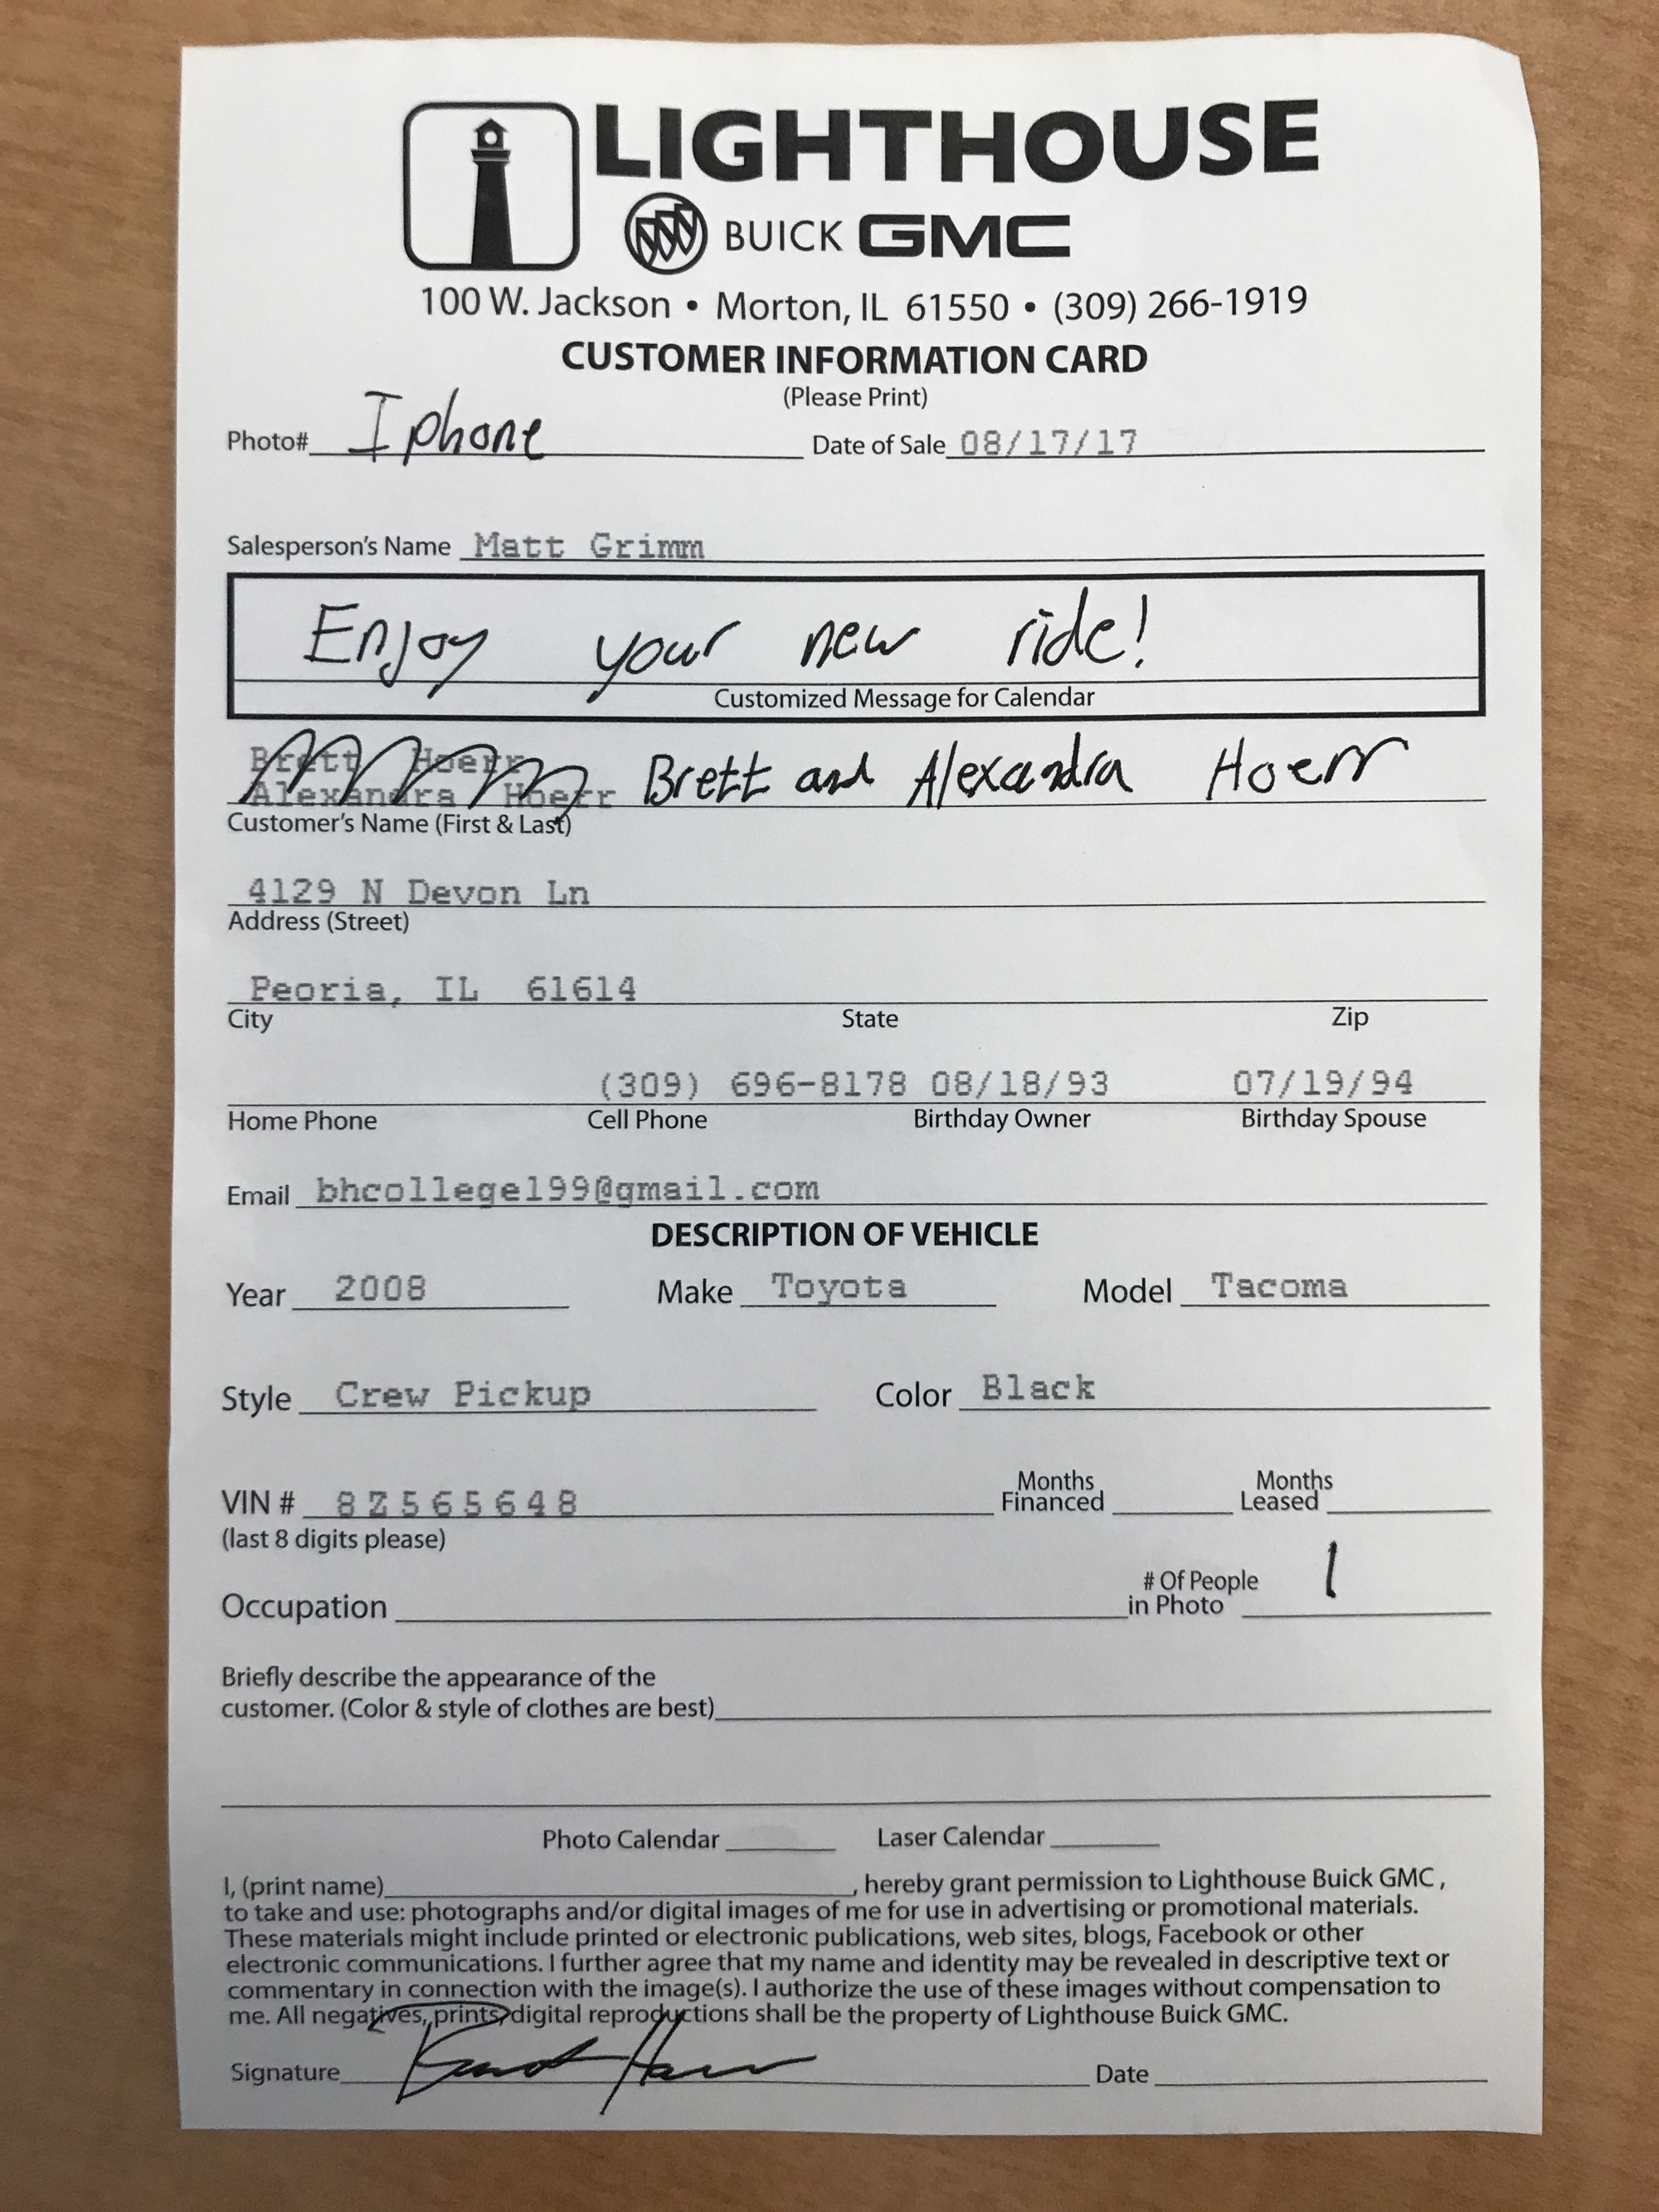 LIGHTHOUSE
BUICK GMC
100 W. Jackson • Morton, IL 61550 • (309) 266-1919
CUSTOMER INFORMATION CARD
(Please Print)
Photo# Iphone Date of Sale 08/17/17
Salesperson's Name Matt Grimm
Enjoy your new ride!
Customized Message for Calendar
Brett Hoerr
Alexandra Hoerr Brett and Alexandra Hoerr
Customer's Name (First & Last)
4129 N Devon Ln
Address (Street)
Peoria, IL 61614
City State Zip
(309) 696-8178 08/18/93 07/19/94
Home Phone Cell Phone Birthday Owner Birthday Spouse
Email bhcollege199@gmail.com
DESCRIPTION OF VEHICLE
Year 2008 Make Toyota Model Tacoma
Style Crew Pickup Color Black
VIN # 8Z565648 Months Financed Months Leased
(last 8 digits please)
Occupation # Of People in Photo 1
Briefly describe the appearance of the
customer. (Color & style of clothes are best)
Photo Calendar Laser Calendar
I, (print name) , hereby grant permission to Lighthouse Buick GMC ,
to take and use: photographs and/or digital images of me for use in advertising or promotional materials.
These materials might include printed or electronic publications, web sites, blogs, Facebook or other
electronic communications. I further agree that my name and identity may be revealed in descriptive text or
commentary in connection with the image(s). I authorize the use of these images without compensation to
me. All negatives, prints, digital reproductions shall be the property of Lighthouse Buick GMC.
Signature Date